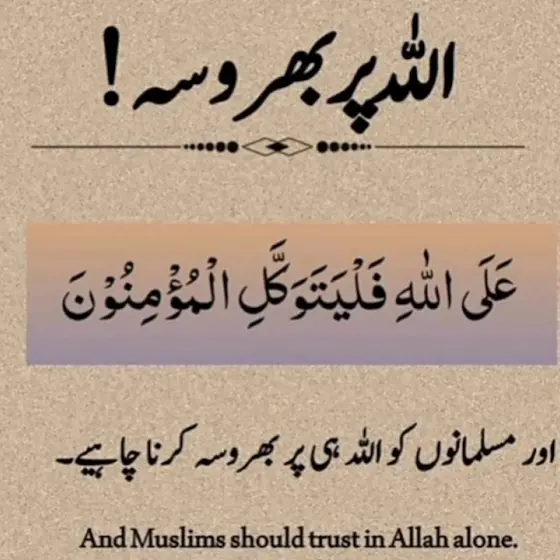 اللہ پر بھروسہ!
عَلَی اللّٰهِ فَلْیَتَوَکَّلِ الْمُؤْمِنُوْنَ
اور مسلمانوں کو اللہ ہی پر بھروسہ کرنا چاہیے۔
And Muslims should trust in Allah alone.